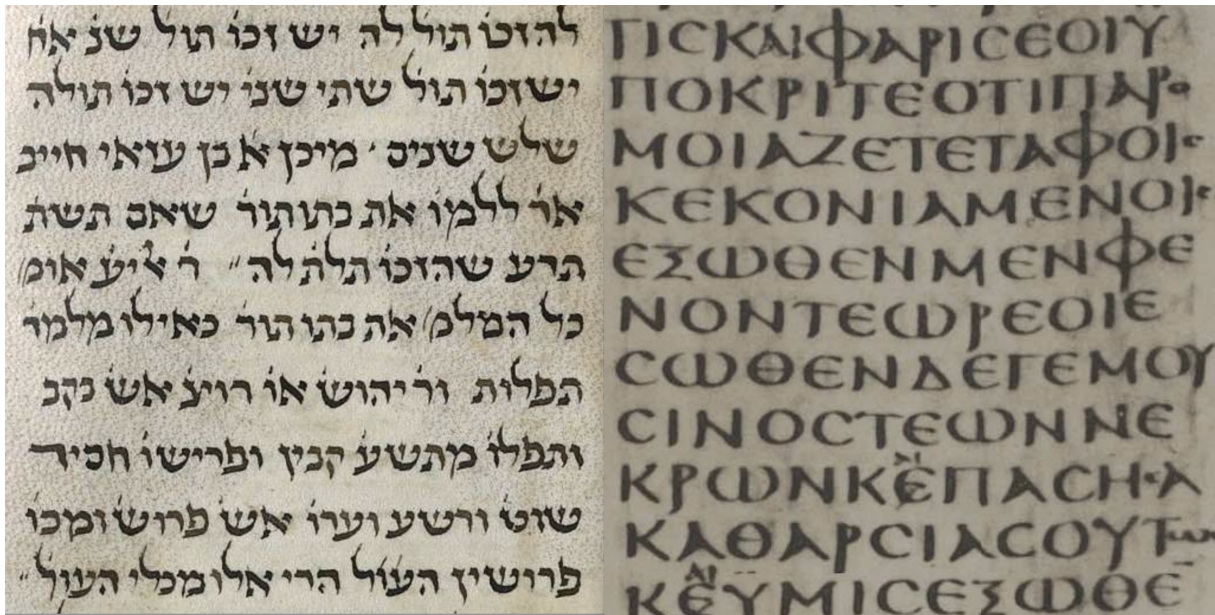 להזכו תול לה יש זכו תול שנ אח
יש זכו תול שתי שני יש זכו תולה
שלש שנים ׳ מיכן א בן עזאי חייב
אד ללמד את בתו תור שאם תשת
תדע שהזכו תלת לה ״ ר אליע אומ׳
כל המלמ׳ את בתו תור כאילו מלמד
תפלות ור יהוש או רוצ אש בקב
ותפלו מתשע קבין ופרישו חסיד
שוט ורשע וערו אש פרוש ומכו
פרושין העול הרי אלו מכלי העול ״
ΓΙϹΚΑΙΦΑΡΙϹΕΟΙΥ
ΠΟΚΡΙΤΕΟΤΙΠΑΡΟ
ΜΟΙΑΖΕΤΕΤΑΦΟΙϹ
ΚΕΚΟΝΙΑΜΕΝΟΙϹ
ΕΞΩΘΕΝΜΕΝΦΕ
ΝΟΝΤΕΩΡΕΟΙΕ
ϹΩΘΕΝΔΕΓΕΜΟΥ
ϹΙΝΟϹΤΕΩΝΝΕ
ΚΡΩΝΚΕΠΑϹΗϹΑ
ΚΑΘΑΡϹΙΑϹΟΥΤΩ
ΚΕΥΜΙϹΕΞΩΘΕ